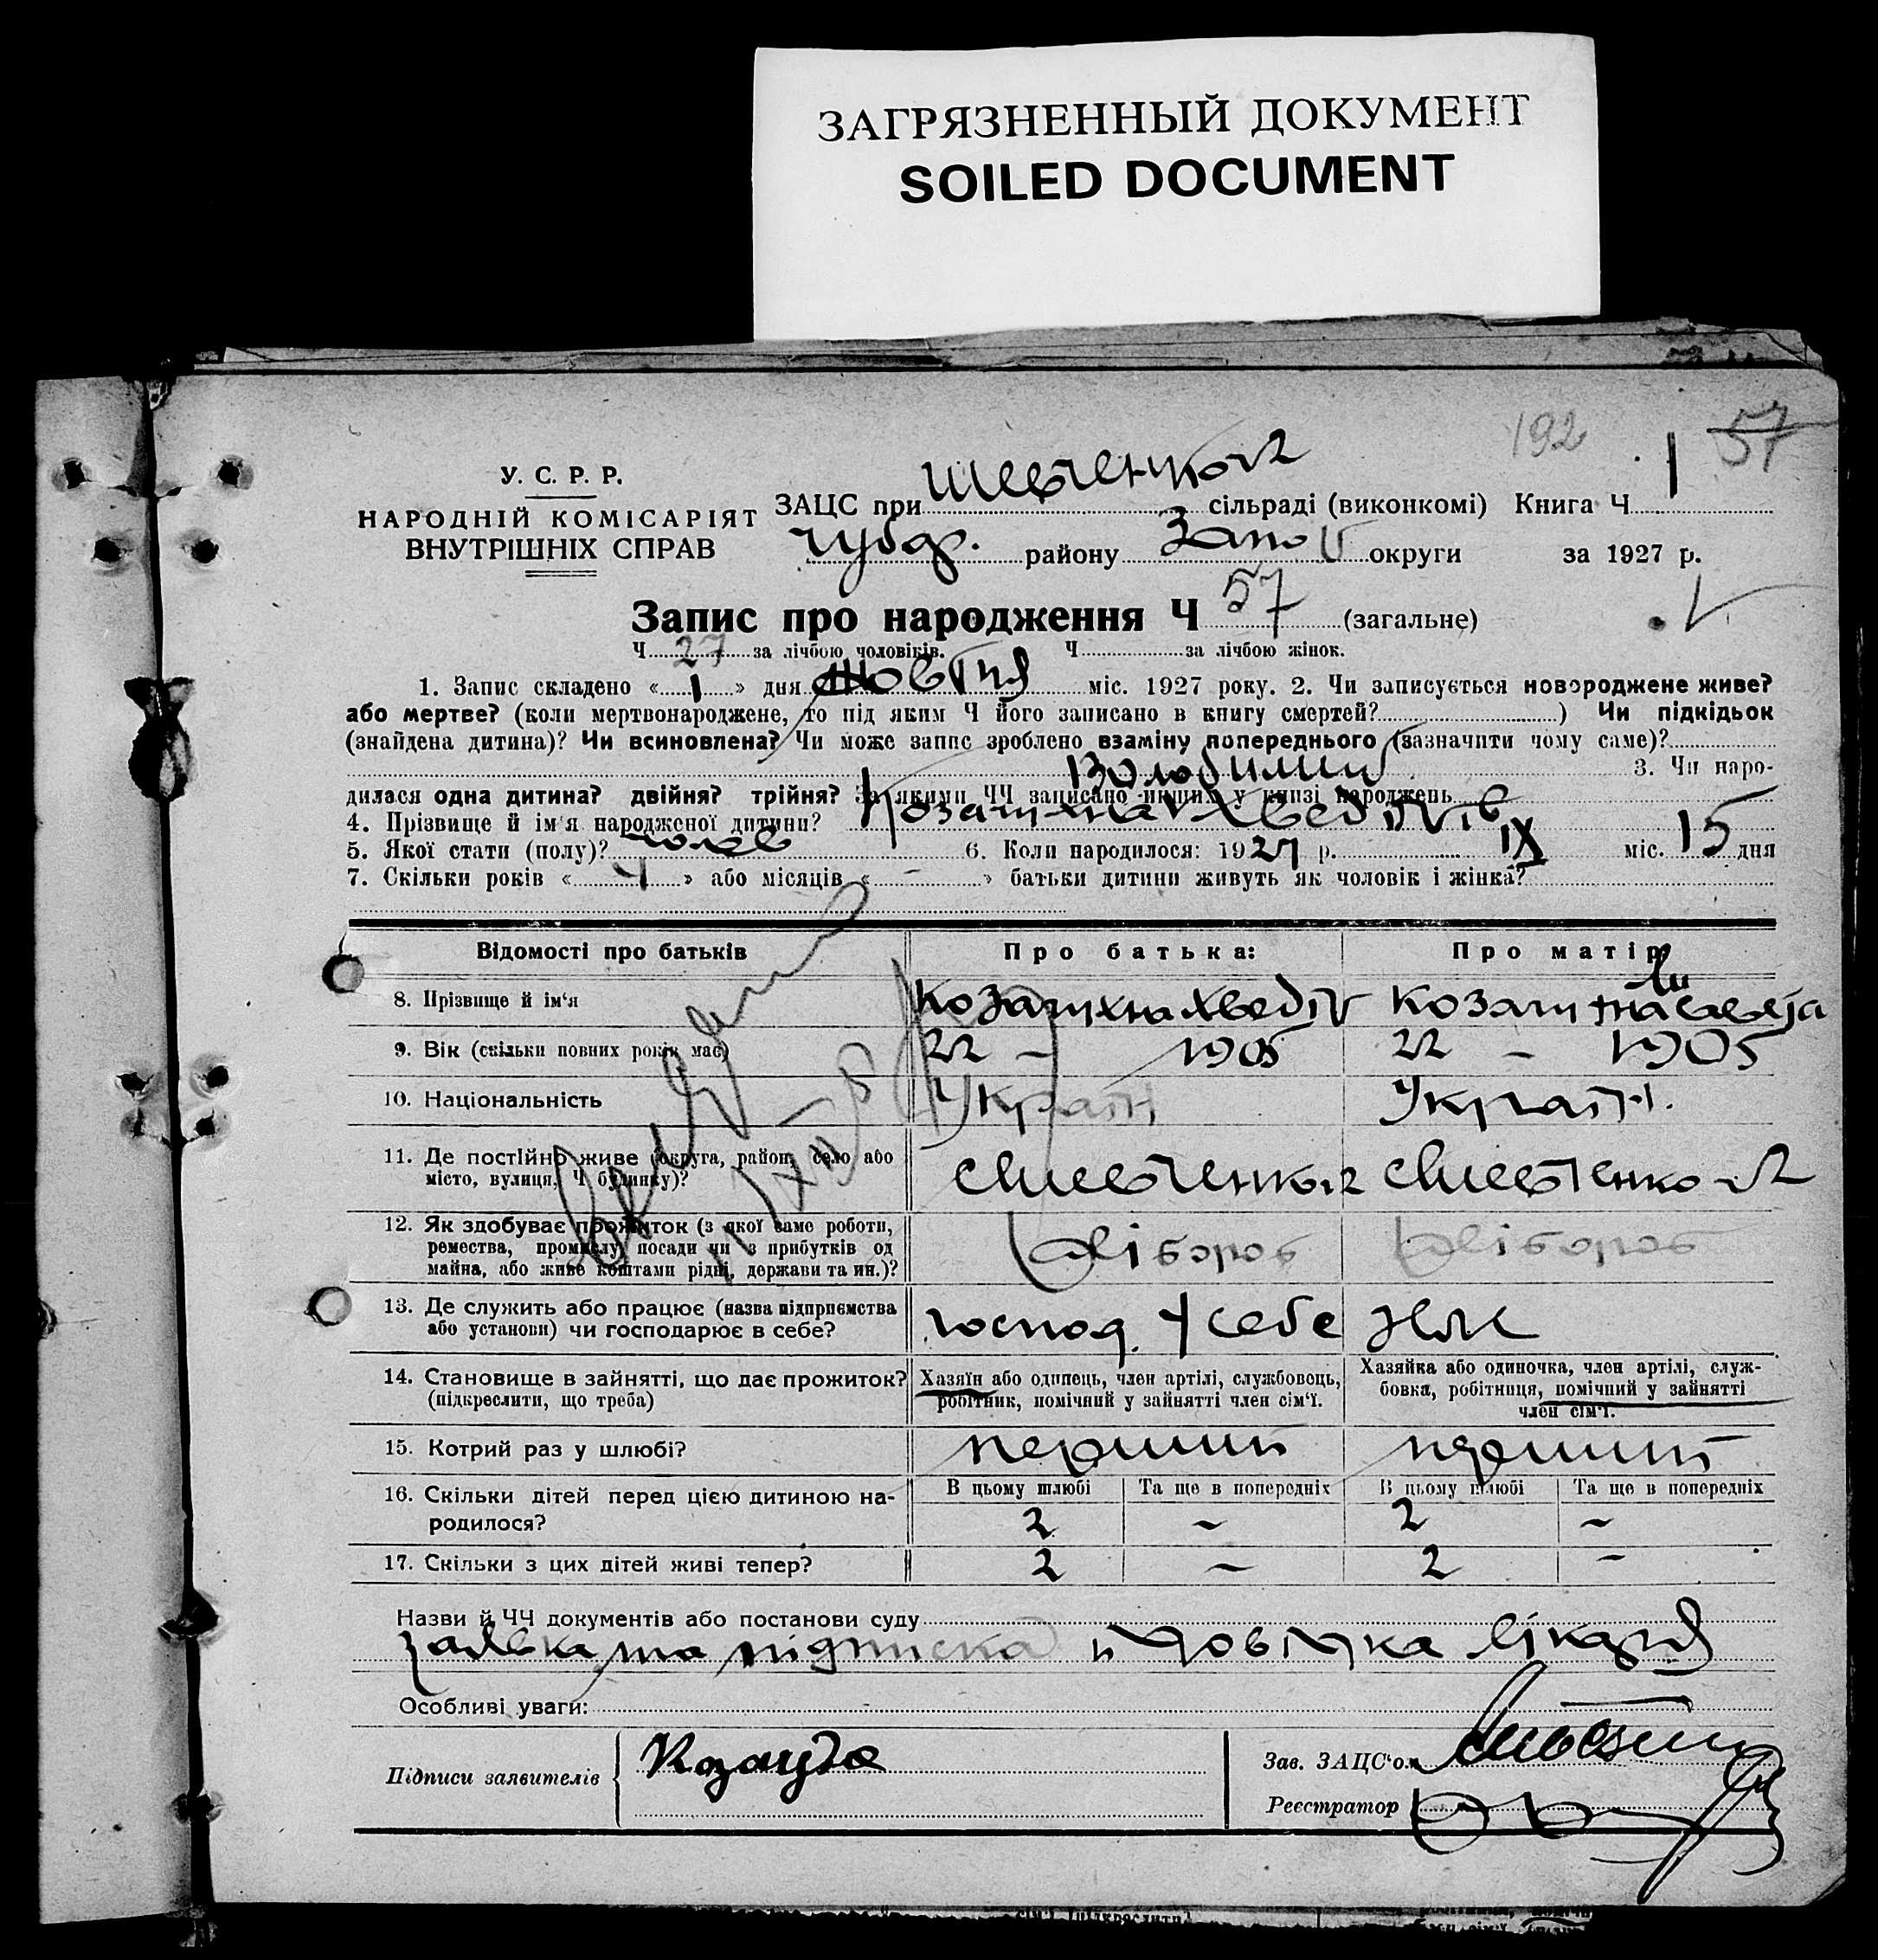 ЗАГРЯЗНЕННЫЙ ДОКУМЕНТ
SOILED DOCUMENT
192 57
У. С. Р. Р.
НАРОДНІЙ КОМІСАРІЯТ
ВНУТРІШНІХ СПРАВ
ЗАЦС при Шевченков сільраді (виконкомі) Книга Ч 1
району Запо округи за 1927 р.
Запис про народження Ч 57 (загальне)
Ч 27 за лічбою чоловіків. Ч за лічбою жінок.
1. Запис складено « 1 » дня Жовтня міс. 1927 року. 2. Чи записується новороджене живе?
або мертве? (коли мертвонароджене, то під яким Ч його записано в книгу смертей? ) Чи підкідьок
(знайдена дитина)? Чи всиновлена? Чи може запис зроблено взаміну попереднього (зазначити чому саме)?
3. Чи наро-
дилася одна дитина? двійня? трійня? За якими ЧЧ записано инших у книзі народжень
Володимир
4. Прізвище й ім'я народженої дитини?
5. Якої стати (полу)? чолов 6. Коли народилося: 1927 р. IX міс. 15 дня
7. Скільки років « 4 » або місяців « - » батьки дитини живуть як чоловік і жінка?
Відомості про батьків Про батька: Про матір:
8. Прізвище й ім'я
9. Вік (скільки повних років має) 22 – 1905 22 – 1905
10. Національність Україн Україн.
11. Де постійно живе (округа, район, село або
місто, вулиця, Ч будинку)?
с Шевченков с Шевченков
12. Як здобуває прожиток (з якої саме роботи,
ремества, промислу, посади чи з прибутків од
майна, або живе коштами рідні, держави та ин.)?
хлібороб хлібороб
13. Де служить або працює (назва підприємства
або установи) чи господарює в себе?
господ. у себе
14. Становище в зайнятті, що дає прожиток?
(підкреслити, що треба)
Хазяїн або одинець, член артілі, службовець,
робітник, помічний у зайнятті член сім'ї.
Хазяйка або одиночка, член артілі, служ-
бовка, робітниця, помічний у зайнятті
член сім'ї.
15. Котрий раз у шлюбі? перший перший
16. Скільки дітей перед цією дитиною на-
родилося?
В цьому шлюбі Та ще в попередніх В цьому шлюбі Та ще в попередніх
2 – 2 –
17. Скільки з цих дітей живі тепер? 2 – 2 –
Назви й ЧЧ документів або постанови суду
заявка та підписка лікаря
Особливі уваги:
Підписи заявителів
Зав. ЗАЦС'ом
Реєстратор